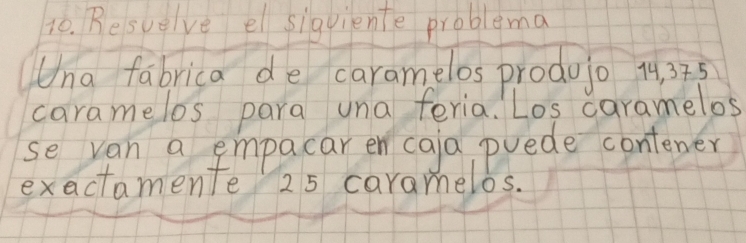 10. Resuelve el siguiente problema
Una fábrica de caramelos produjo 14,375
caramelos para una feria. Los caramelos
se van a empacar en caja puede contener
exactamente 25 caramelos.